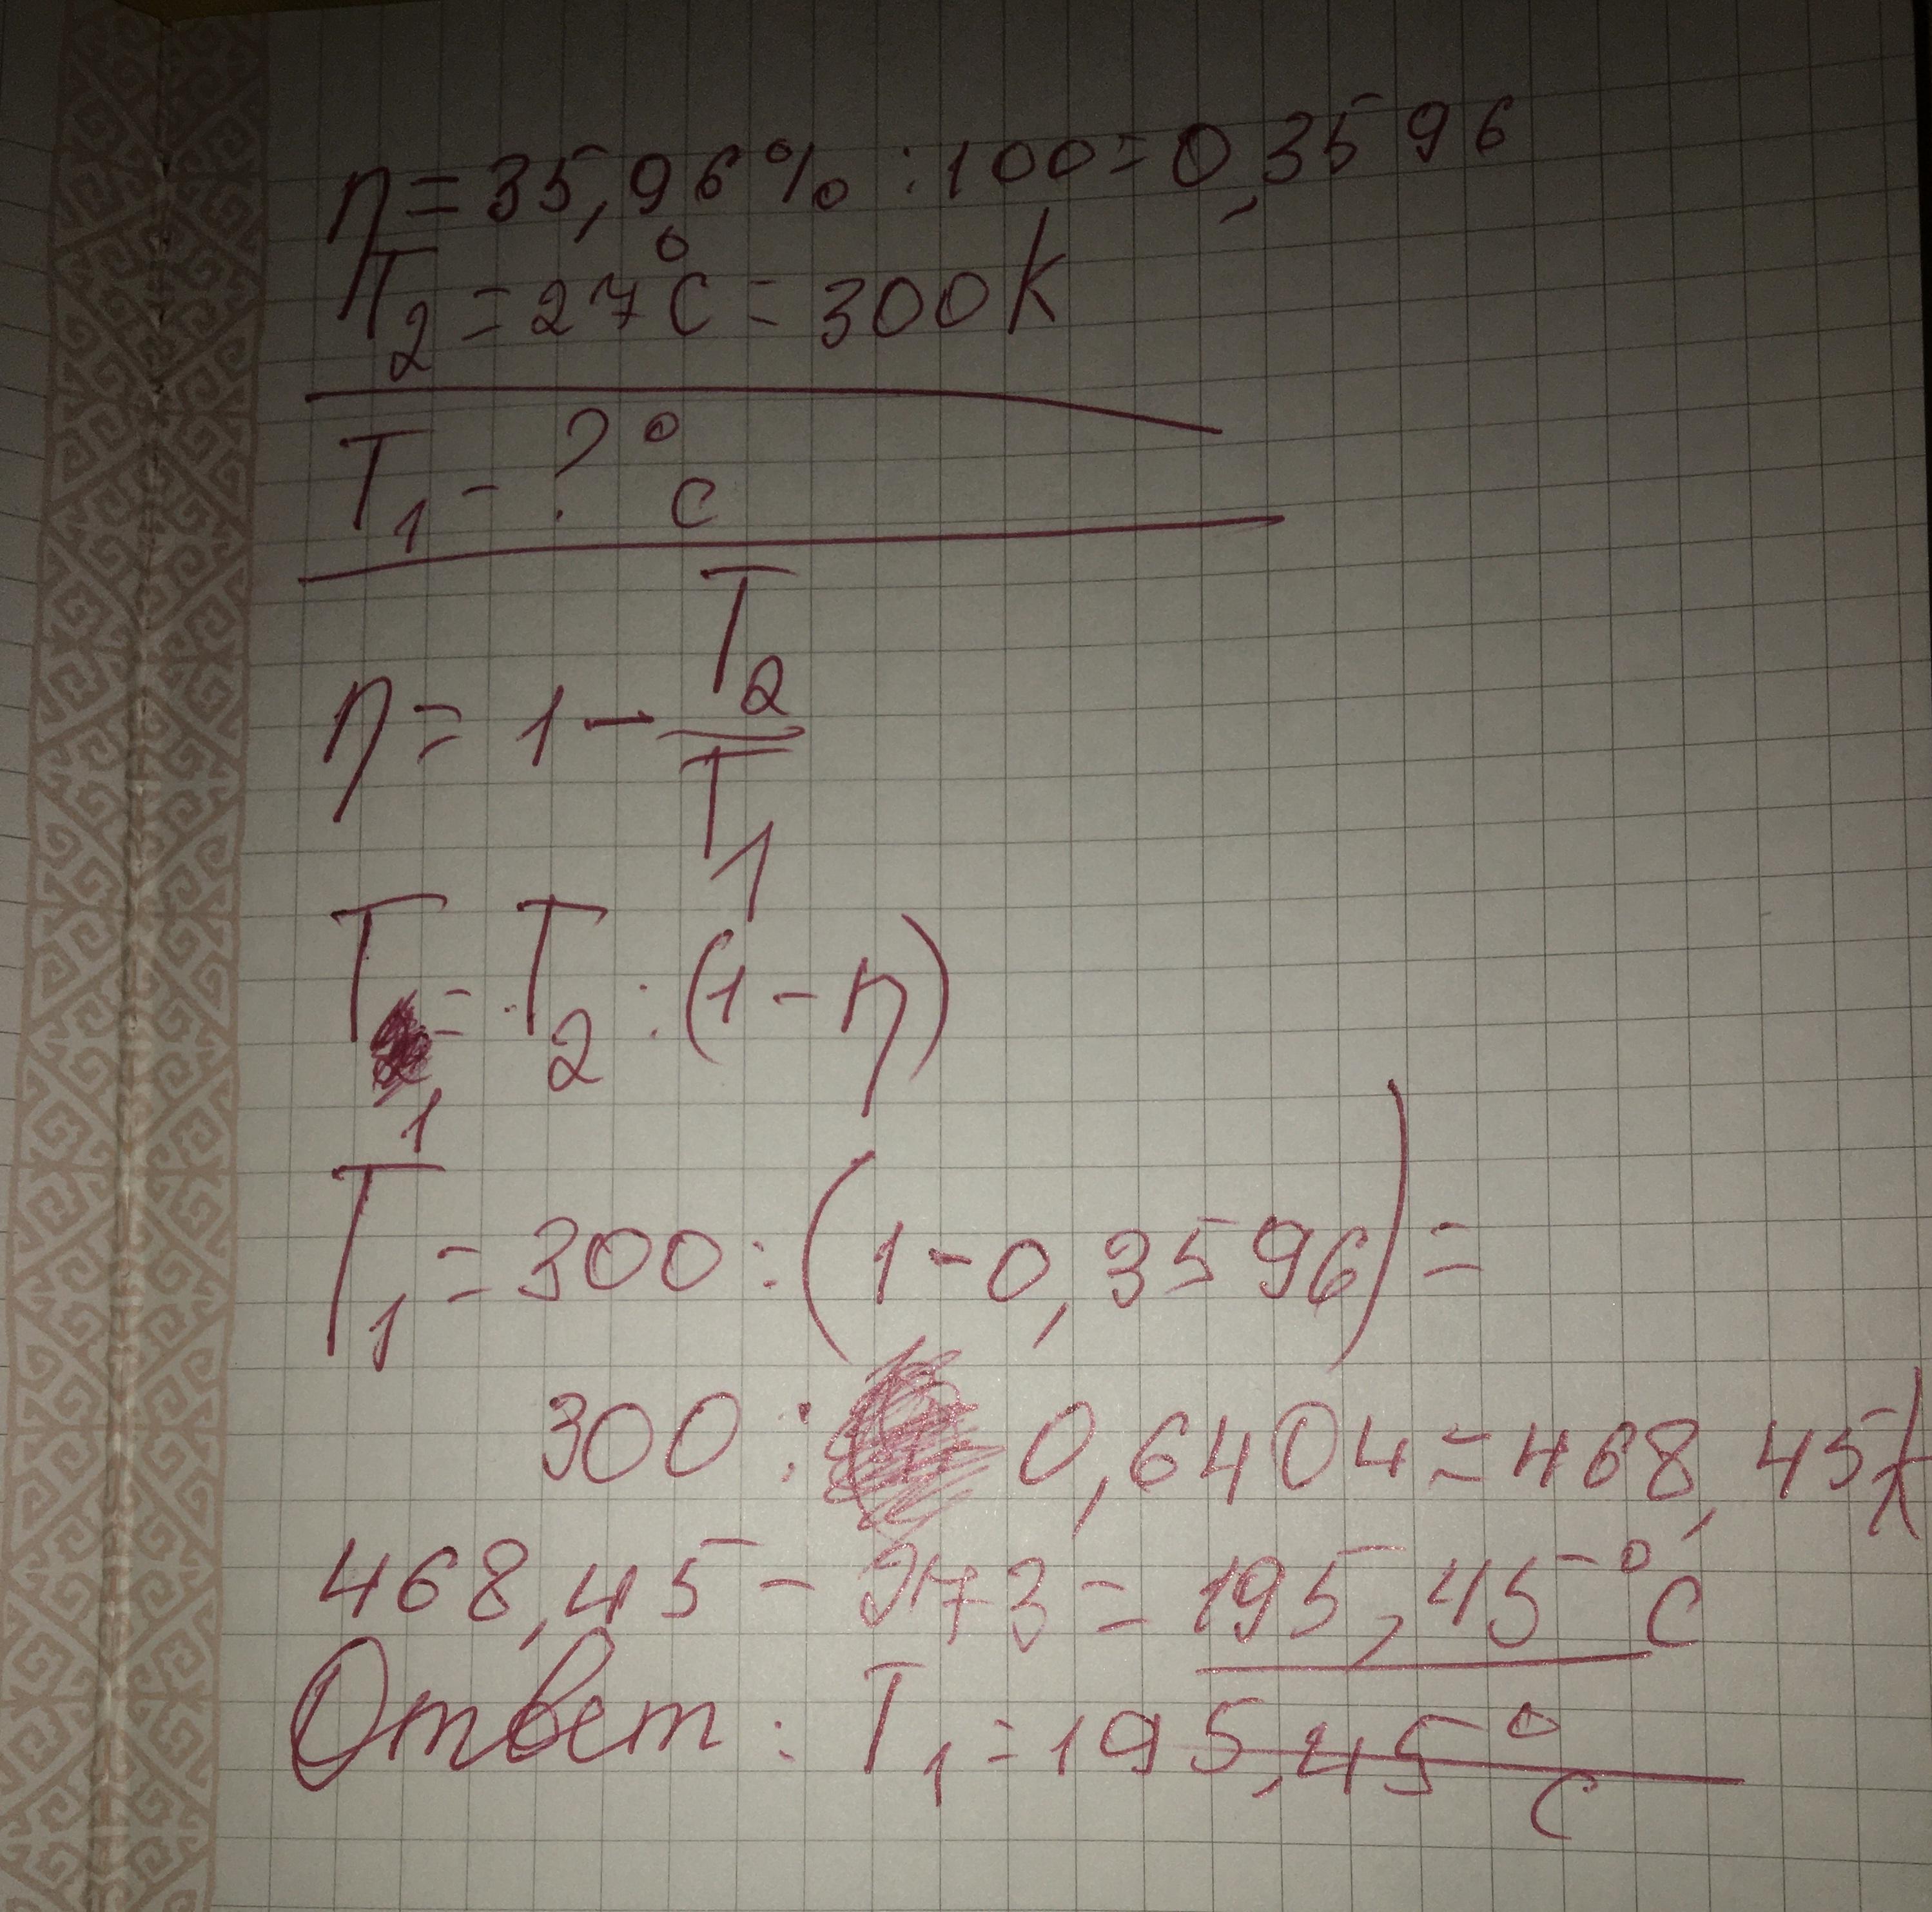 η = 35,96% : 100 = 0,3596
T₂ = 27°C = 300K
T₁ - ? °C
η = 1 - T₂/T₁
T₁ = T₂ : (1 - η)
T₁ = 300 : (1 - 0,3596) =
300 : 0,6404 = 468,45K
468,45 - 273 = 195,45°C
Ответ: T₁ = 195,45°C